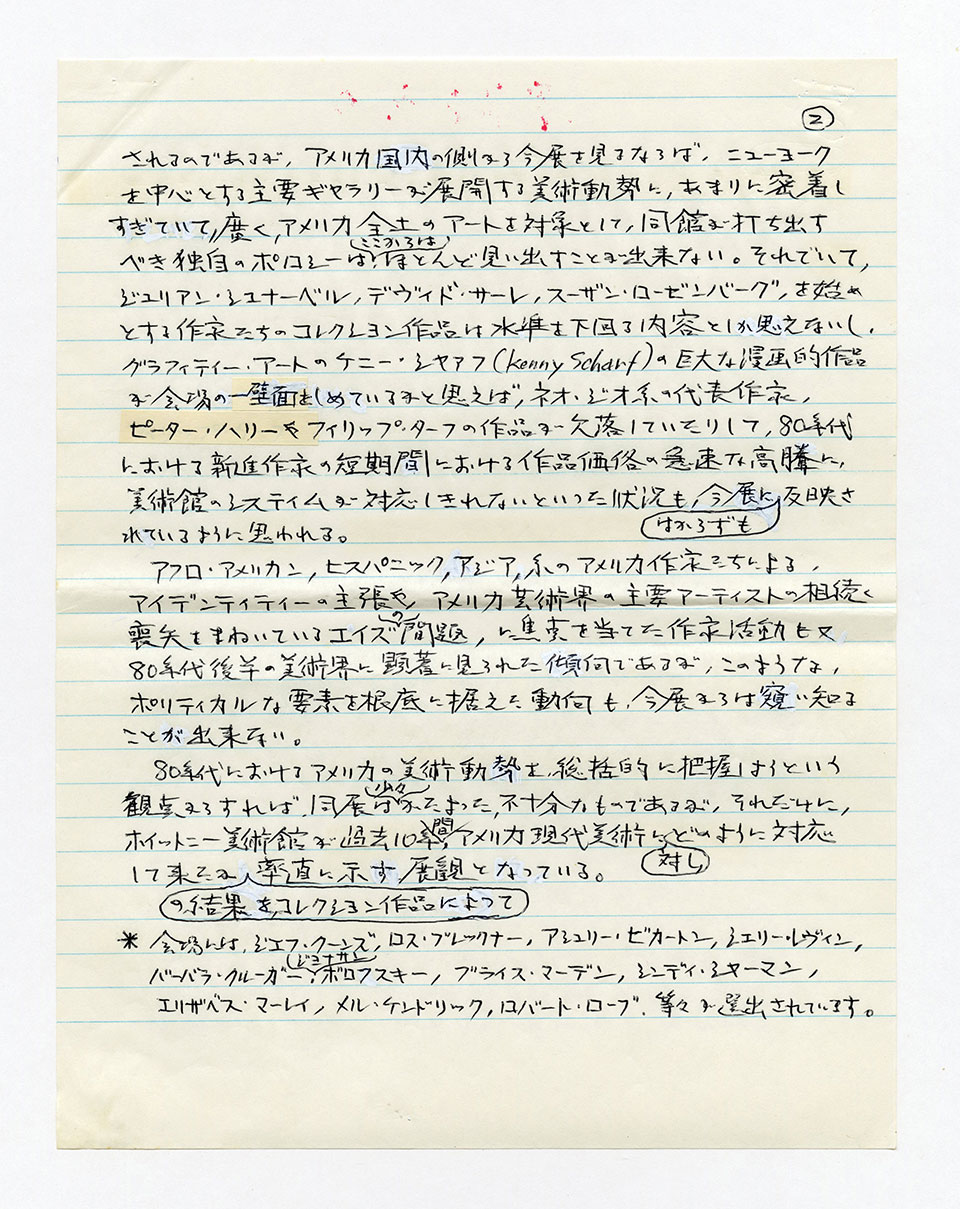 ②
されるのであるが、アメリカ国内の側から今展を見るならば、ニューヨーク
を中心とする主要ギャラリーが展開する美術動勢に、あまりに密着し
すぎていて、広く、アメリカ全土のアートを対象として、同館が打ち出す
ここからは
べき独自のポリシーは、ほとんど見い出すことが出来ない。それでいて、
ジュリアン・シュナーベル、デヴィド・サーレ、スーザン・ローゼンバーグ、を始め
とする作家たちのコレクション作品は水準を下回る内容としか思えないし、
グラフィティー・アートのケニー・シャアフ(Kenny Scharf)の巨大な漫画的作品
が会場の一壁面をしめているかと思えば、ネオ・ジオ系の代表作家、
ピーター・ハリーやフィリップ・ターフの作品が欠落していたりして、80年代
における新進作家の短期間における作品価格の急速な高騰に、
美術館のシステイムが対応しきれないといった状況も、今展に反映さ
はからずも
れているように思われる。
アフロ・アメリカン、ヒスパニック、アジア、系のアメリカ作家たちによる、
アイデンティティーの主張や、アメリカ芸術界の主要アーティストの相続く
の
喪失をまねいているエイズ問題、に焦点を当てた作家活動も又、
80年代後半の美術界に顕著に見られた傾向であるが、このような、
ポリティカルな要素を根底に据えた動向も、今展からは窺い知る
ことが出来ない。
80年代におけるアメリカの美術動勢を、総括的に把握しようという
少々
観点からすれば、同展はかたよった、不十分なものであるが、それだけに、
間
ホイットニー美術館が過去10年、アメリカ現代美術にどのように対応
対し
して来たか、率直に示す展観となっている。
の結果を、コレクション作品によって
* 会場には、ジェフ・クーンズ、ロス・ブレックナー、アシュリー・ビカートン、シェリー・レヴィン、
ジョナサン
バーバラ・クルーガー、ボロフスキー、ブライス・マーデン、シンディ・シャーマン、
エリザベス・マーレイ、メル・ケンドリック、ロバート・ローブ、等々が選出されています。